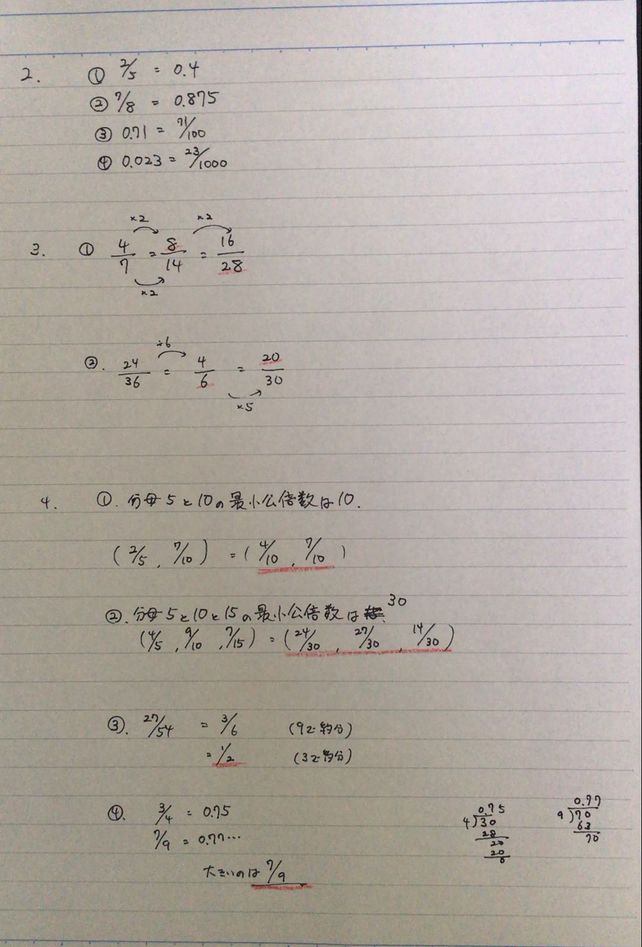 2. ① 2/5 = 0.4
② 7/8 = 0.875
③ 0.71 = 71/100
④ 0.023 = 23/1000
×2 ×2
3. ① 4/7 = 8/14 = 16/28
×2
÷6
②. 24/36 = 4/6 = 20/30
×5
4. ①. 分母5と10の最小公倍数は10.
(2/5, 7/10) = (4/10, 7/10)
②. 分母5と10と15の最小公倍数は 30
(4/5, 9/10, 7/15) = (24/30, 27/30, 14/30)
③. 27/54 = 3/6 (9で約分)
= 1/2 (3で約分)
④. 3/4 = 0.75
7/9 = 0.77…
大きいのは 7/9
0.75
4)30
28
20
20
0
0.77
9)70
63
70